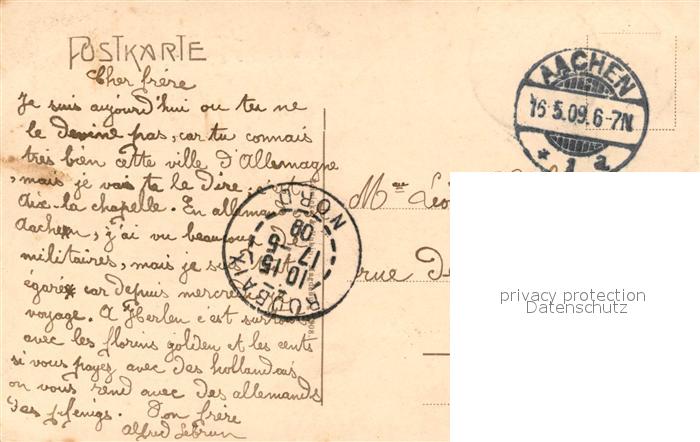 POSTKARTE
Cher frère
Je suis aujourd'hui ou tu ne
le devine pas, car tu connais
très bien cette ville d'Allemagne
, mais je vais te le dire, c'est
Aix-la chapelle. En allemand
Aachen, j'ai vu beaucoup de
militaires, mais je suis
égaré car depuis mercredi
voyage. A Herlen c'est surtout
avec les florins golden et les cents
si vous payez avec des hollandais
on vous rend avec des allemands
des pfenigs. Ton frère
Alfred Lebrun
AACHEN
16.5.09. 6-7N.
* 1 a
ROUBAIX
NORD
10 15
17 -5
09
Mme Léo
rue de
privacy protection
Datenschutz